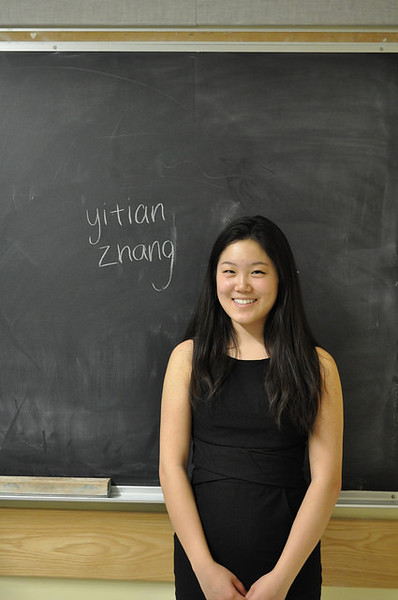 yitian
zhang